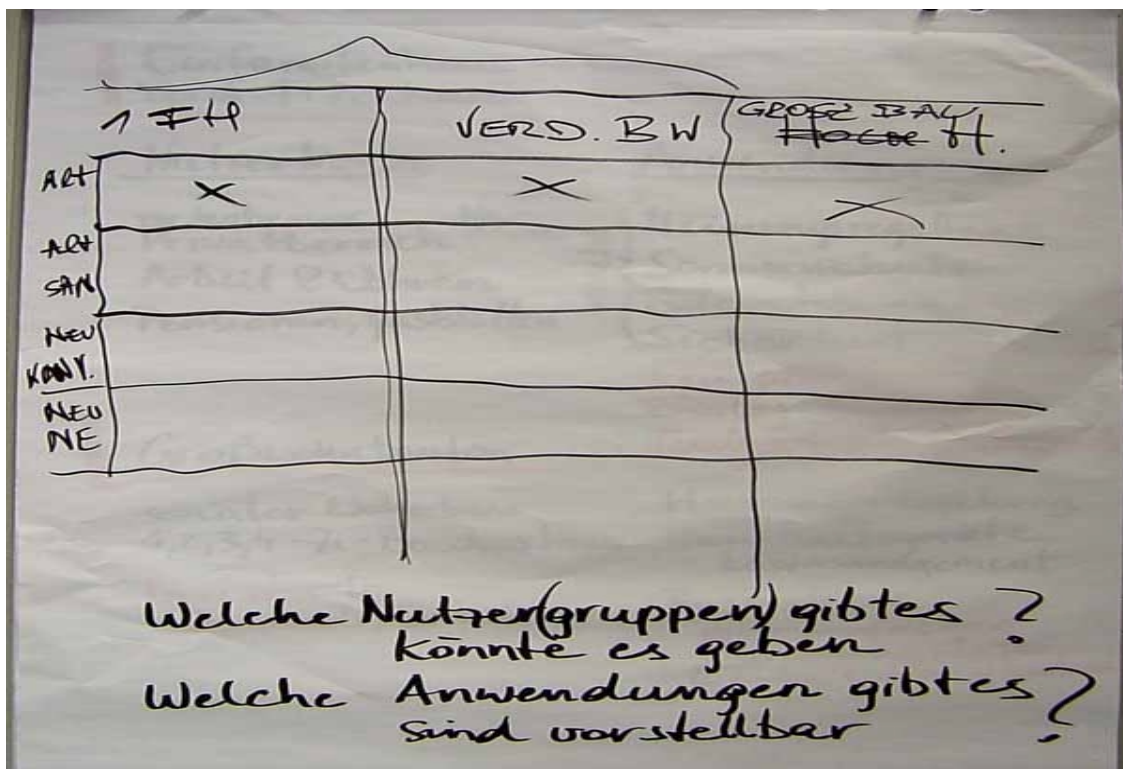 1 FH VERD. BW GROSZ BAU
H.
ALT X X X
ALT
SAN
NEU
KONV.
NEU
NE
Welche Nutzer(gruppen) gibtes ?
könnte es geben
Welche Anwendungen gibtes ?
sind vorstellbar